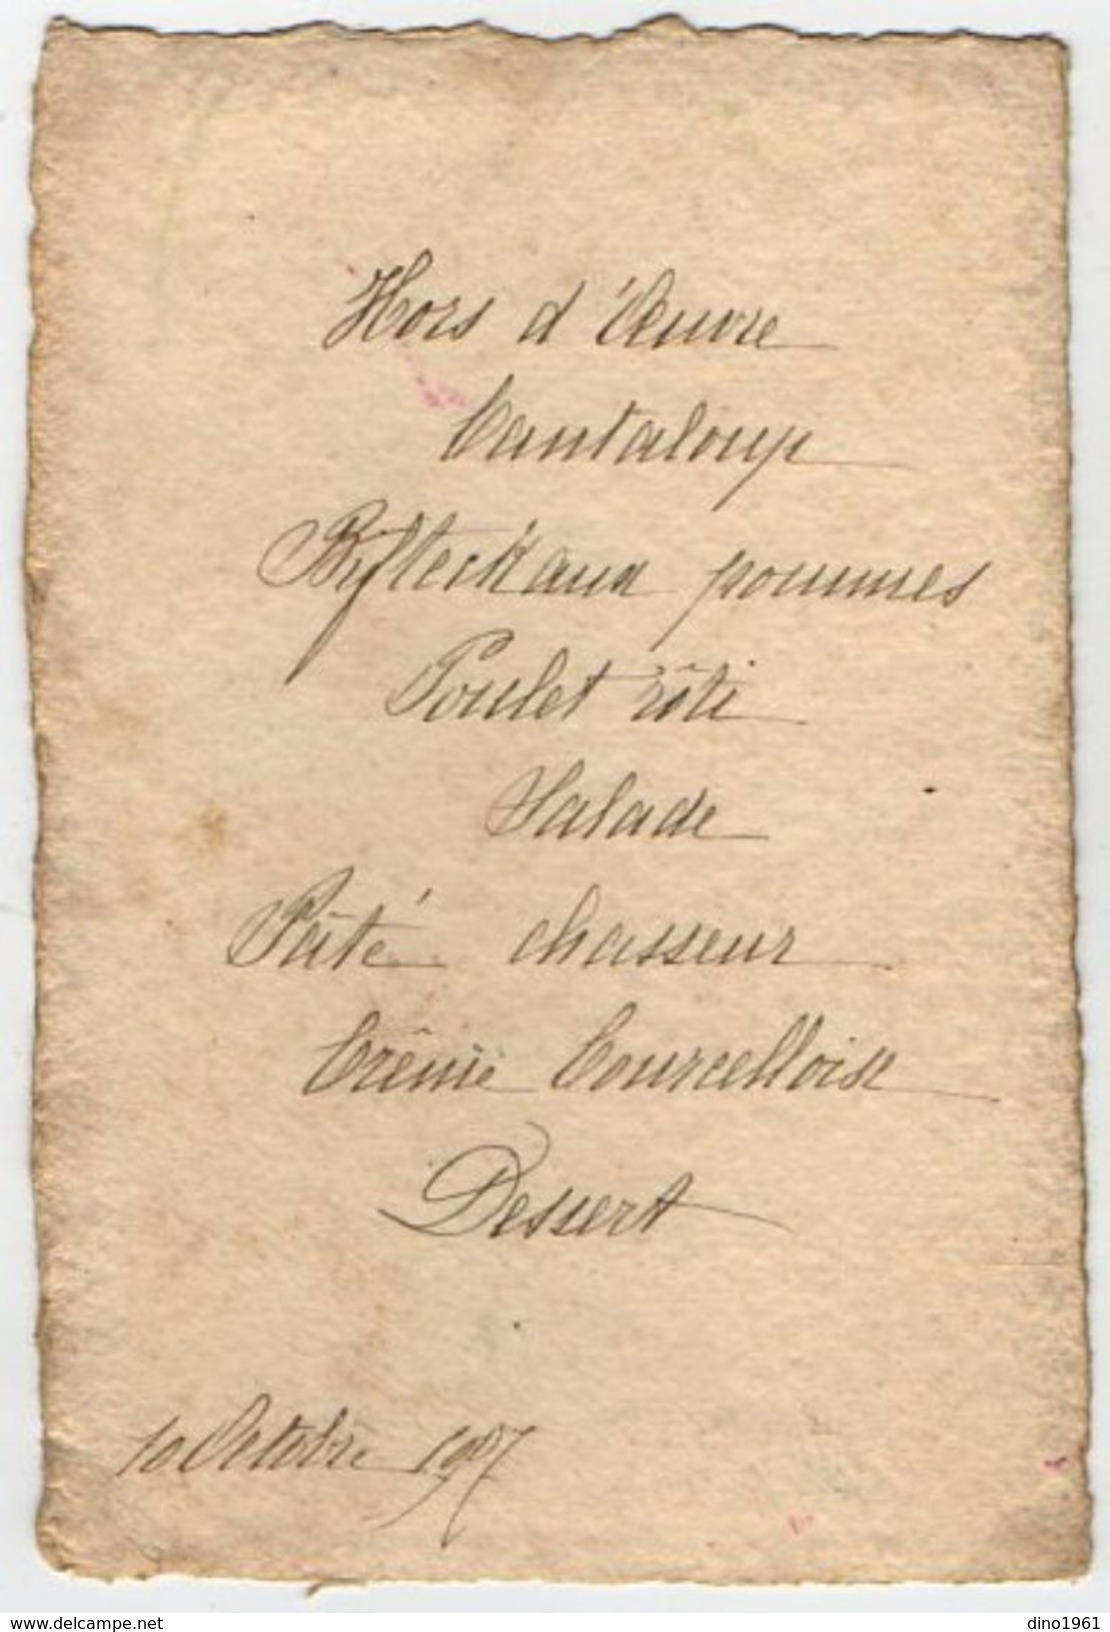 Hors d'Œuvre
Cantaloup
Bifteck aux pommes
Poulet rôti
Salade
Pâté chasseur
Crême Courcelloise
Dessert
10 Octobre 1907
www.delcampe.net
dino1961